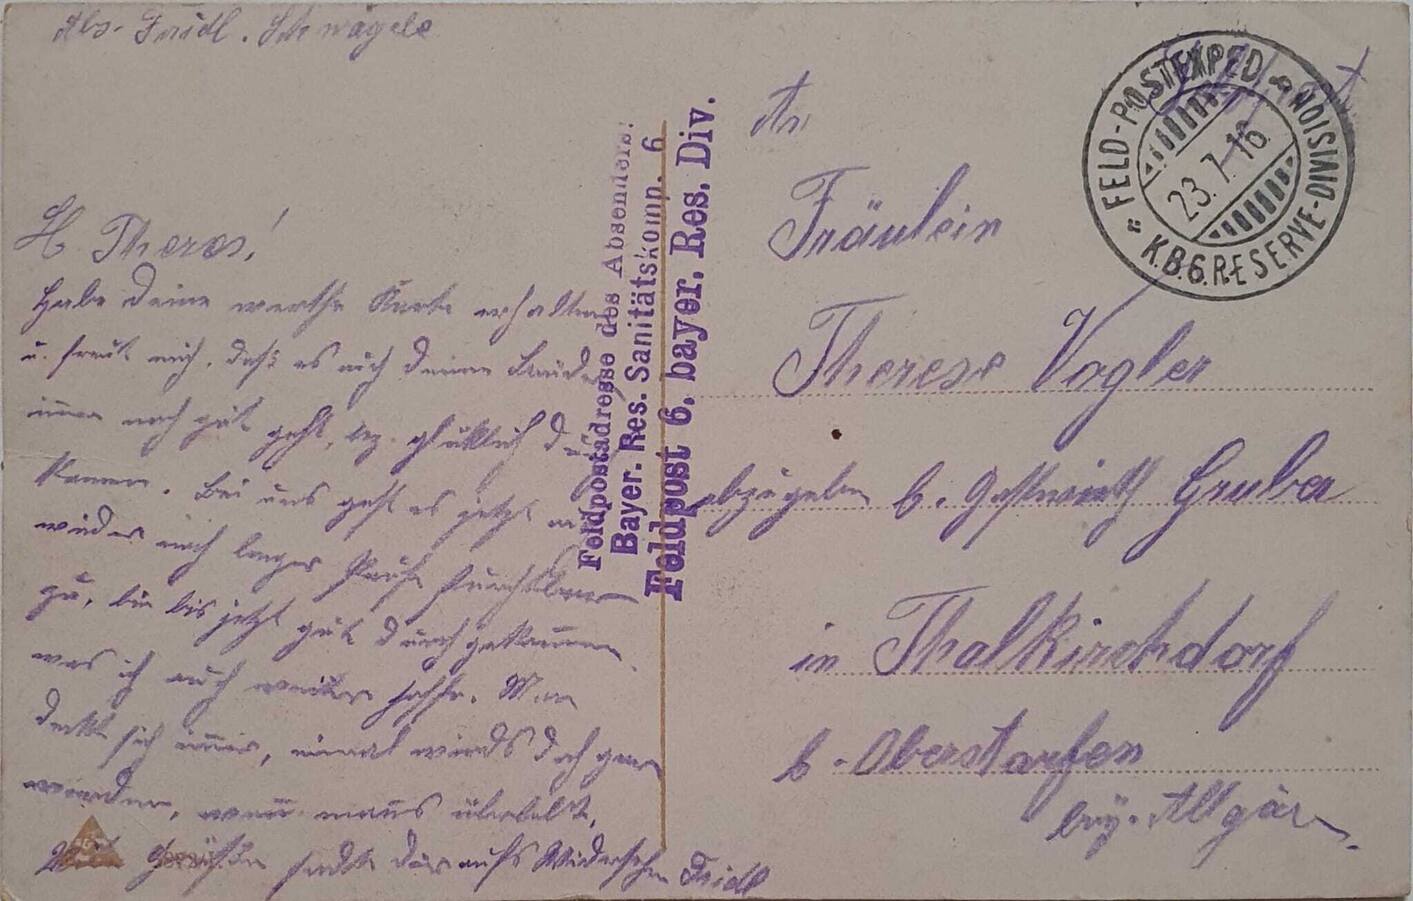 Abs. Fridl. Schwägele
H. Theres!
Habe deine werthe Karte erhalten
u. freut mich, daß es auch deinen Brüder
immer noch gut geht, bez. glücklich da
kamen. Bei uns geht es jetzt auch
wieder nach langer Pause furchtbar
zu, bin bis jetzt gut durch gekommen,
was ich auch weiter hoffe. Man
denkt sich immer, einmal wirds doch gar
werden, wenn mans überlebt.
Mit Grüßen sendet dir aufs Widersehn Fridl
Feldpostadresse des Absenders:
Bayer. Res. Sanitätskomp. 6
Feldpost 6. bayer. Res. Div.
FELD-POSTEXPED. D.
K.B.6.RESERVE-DIVISION
23. 7. 16
An
Fräulein
Therese Vogler
abzugeben b. Gastwirth Gruber
in Thalkirchdorf
b. Oberstaufen
bay. Allgäu.